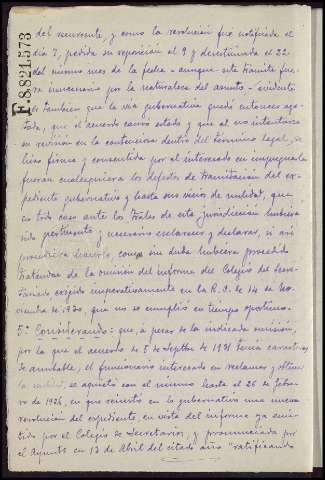 F8821573
del recurrente, y como la resolución fue notificada el
día 7, pedida su reposición el 9 y desestimada el 22
del mismo mes de la fecha - aunque este trámite fue-
ra innecesario por la naturaleza del asunto - evidente
es también que la vía gubernativa quedó entonces ago-
tada, que el acuerdo causó estado, y que al no intentarse
su revisión en lo contencioso dentro del término legal,
firme y consentida por el interesado en impugnarla
fueran cualesquiera los defectos de tramitación del ex-
pediente gubernativo y hasta sus vicios de nulidad, que
en todo caso ante los Trales de esta jurisdicción hubiera
sido pertinente y necesario esclarecer y declarar, si así
procediera hacerlo, como sin duda hubiera procedido
tratándose de la omisión del informe del Colegio del Secre-
tariado, exigido imperativamente en la R.O. de 14 de No-
viembre de 1920, que no se cumplió en tiempo oportuno.
5º Considerando: que, a pesar de la indicada omisión,
por la que el acuerdo de 5 de Septbre de 1921 tenía caracteres
de anulable, el funcionario interesado en reclamar y obtener
la nulidad, se aquietó con el mismo hasta el 26 de Febre-
ro de 1926, en que reiteró en lo gubernativo una nueva
resolución del expediente, en vista del informe ya emi-
tido por el Colegio de Secretarios, y pronunciada por
el Ayunto en 13 de Abril del citado año "ratificando